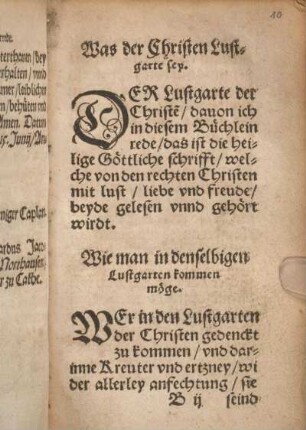 nde
terthanen / bey
rhalten / vnd
mer / leiblicher
en / behüten vnd
Amen. Datum
Junij / An
niger Caplan.
ardus Jaco
Northausen
r zu Cathe.
10
Was der Christen Lust-
garte sey.
DER Lustgarte der
Christē / dauon ich
in diesem Büchlein
rede / das ist die hei-
lige Göttliche schrifft / wel-
che von den rechten Christen
mit lust / liebe vnd freude /
beyde gelesen vnnd gehört
wirdt.
Wie man in denselbigen
Lustgarten kommen
möge.
WEr in den Lustgarten
der Christen gedenckt
zu kommen / vnd dar-
inne Kreuter vnd ertzney / wi
der allerley anfechtung / sie
B ij seind